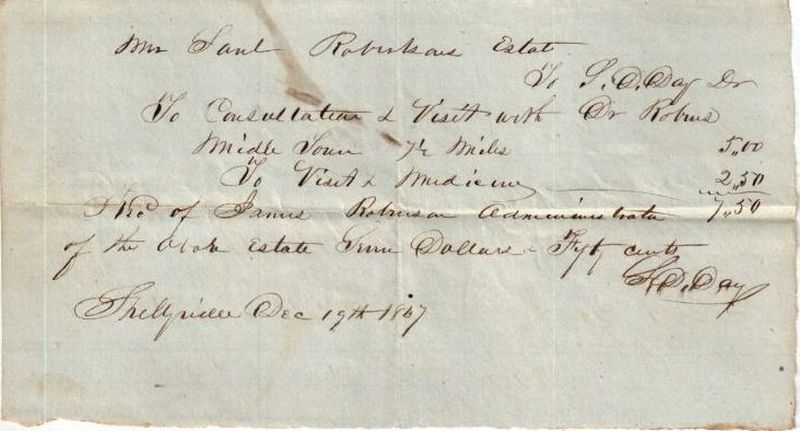 Mr Saml Robertsons Estat
To S. D. Day Dr
To Consultation & Visit with Dr Robins
Middle Town 7½ Miles 5,,00
To Visit & Medisine 2,,50
Recd of James Robinson Administrator 7,,50
of the above Estate Seven Dollars & Fifty cents
S. D. Day
Shelbyville Dec 19th 1847